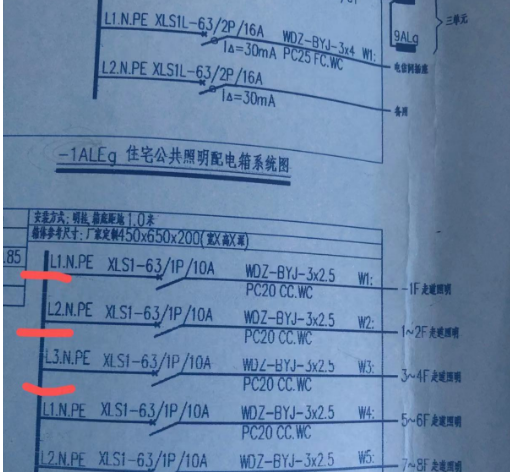 三单元
9ALg
L1.N.PE XLS1L-63/2P/16A WDZ-BYJ-3x4 W1:
I△=30mA PC25 FC.WC
电信间插座
L2.N.PE XLS1L-63/2P/16A
I△=30mA
备用
-1ALEg 住宅公共照明配电箱系统图
安装方式:明挂,箱底距地1.0米
箱体参考尺寸:厂家定制450x650x200(宽X高X厚)
.85
L1.N.PE XLS1-63/1P/10A WDZ-BYJ-3x2.5 W1:
PC20 CC.WC
-1F 走道照明
L2.N.PE XLS1-63/1P/10A WDZ-BYJ-3x2.5 W2:
PC20 CC.WC
1~2F 走道照明
L3.N.PE XLS1-63/1P/10A WDZ-BYJ-3x2.5 W3:
PC20 CC.WC
3~4F 走道照明
L1.N.PE XLS1-63/1P/10A WDZ-BYJ-3x2.5 W4:
PC20 CC.WC
5~6F 走道照明
L2.N.PE XLS1-63/1P/10A WDZ-BYJ-3x2.5 W5:
7~8F 走道照明